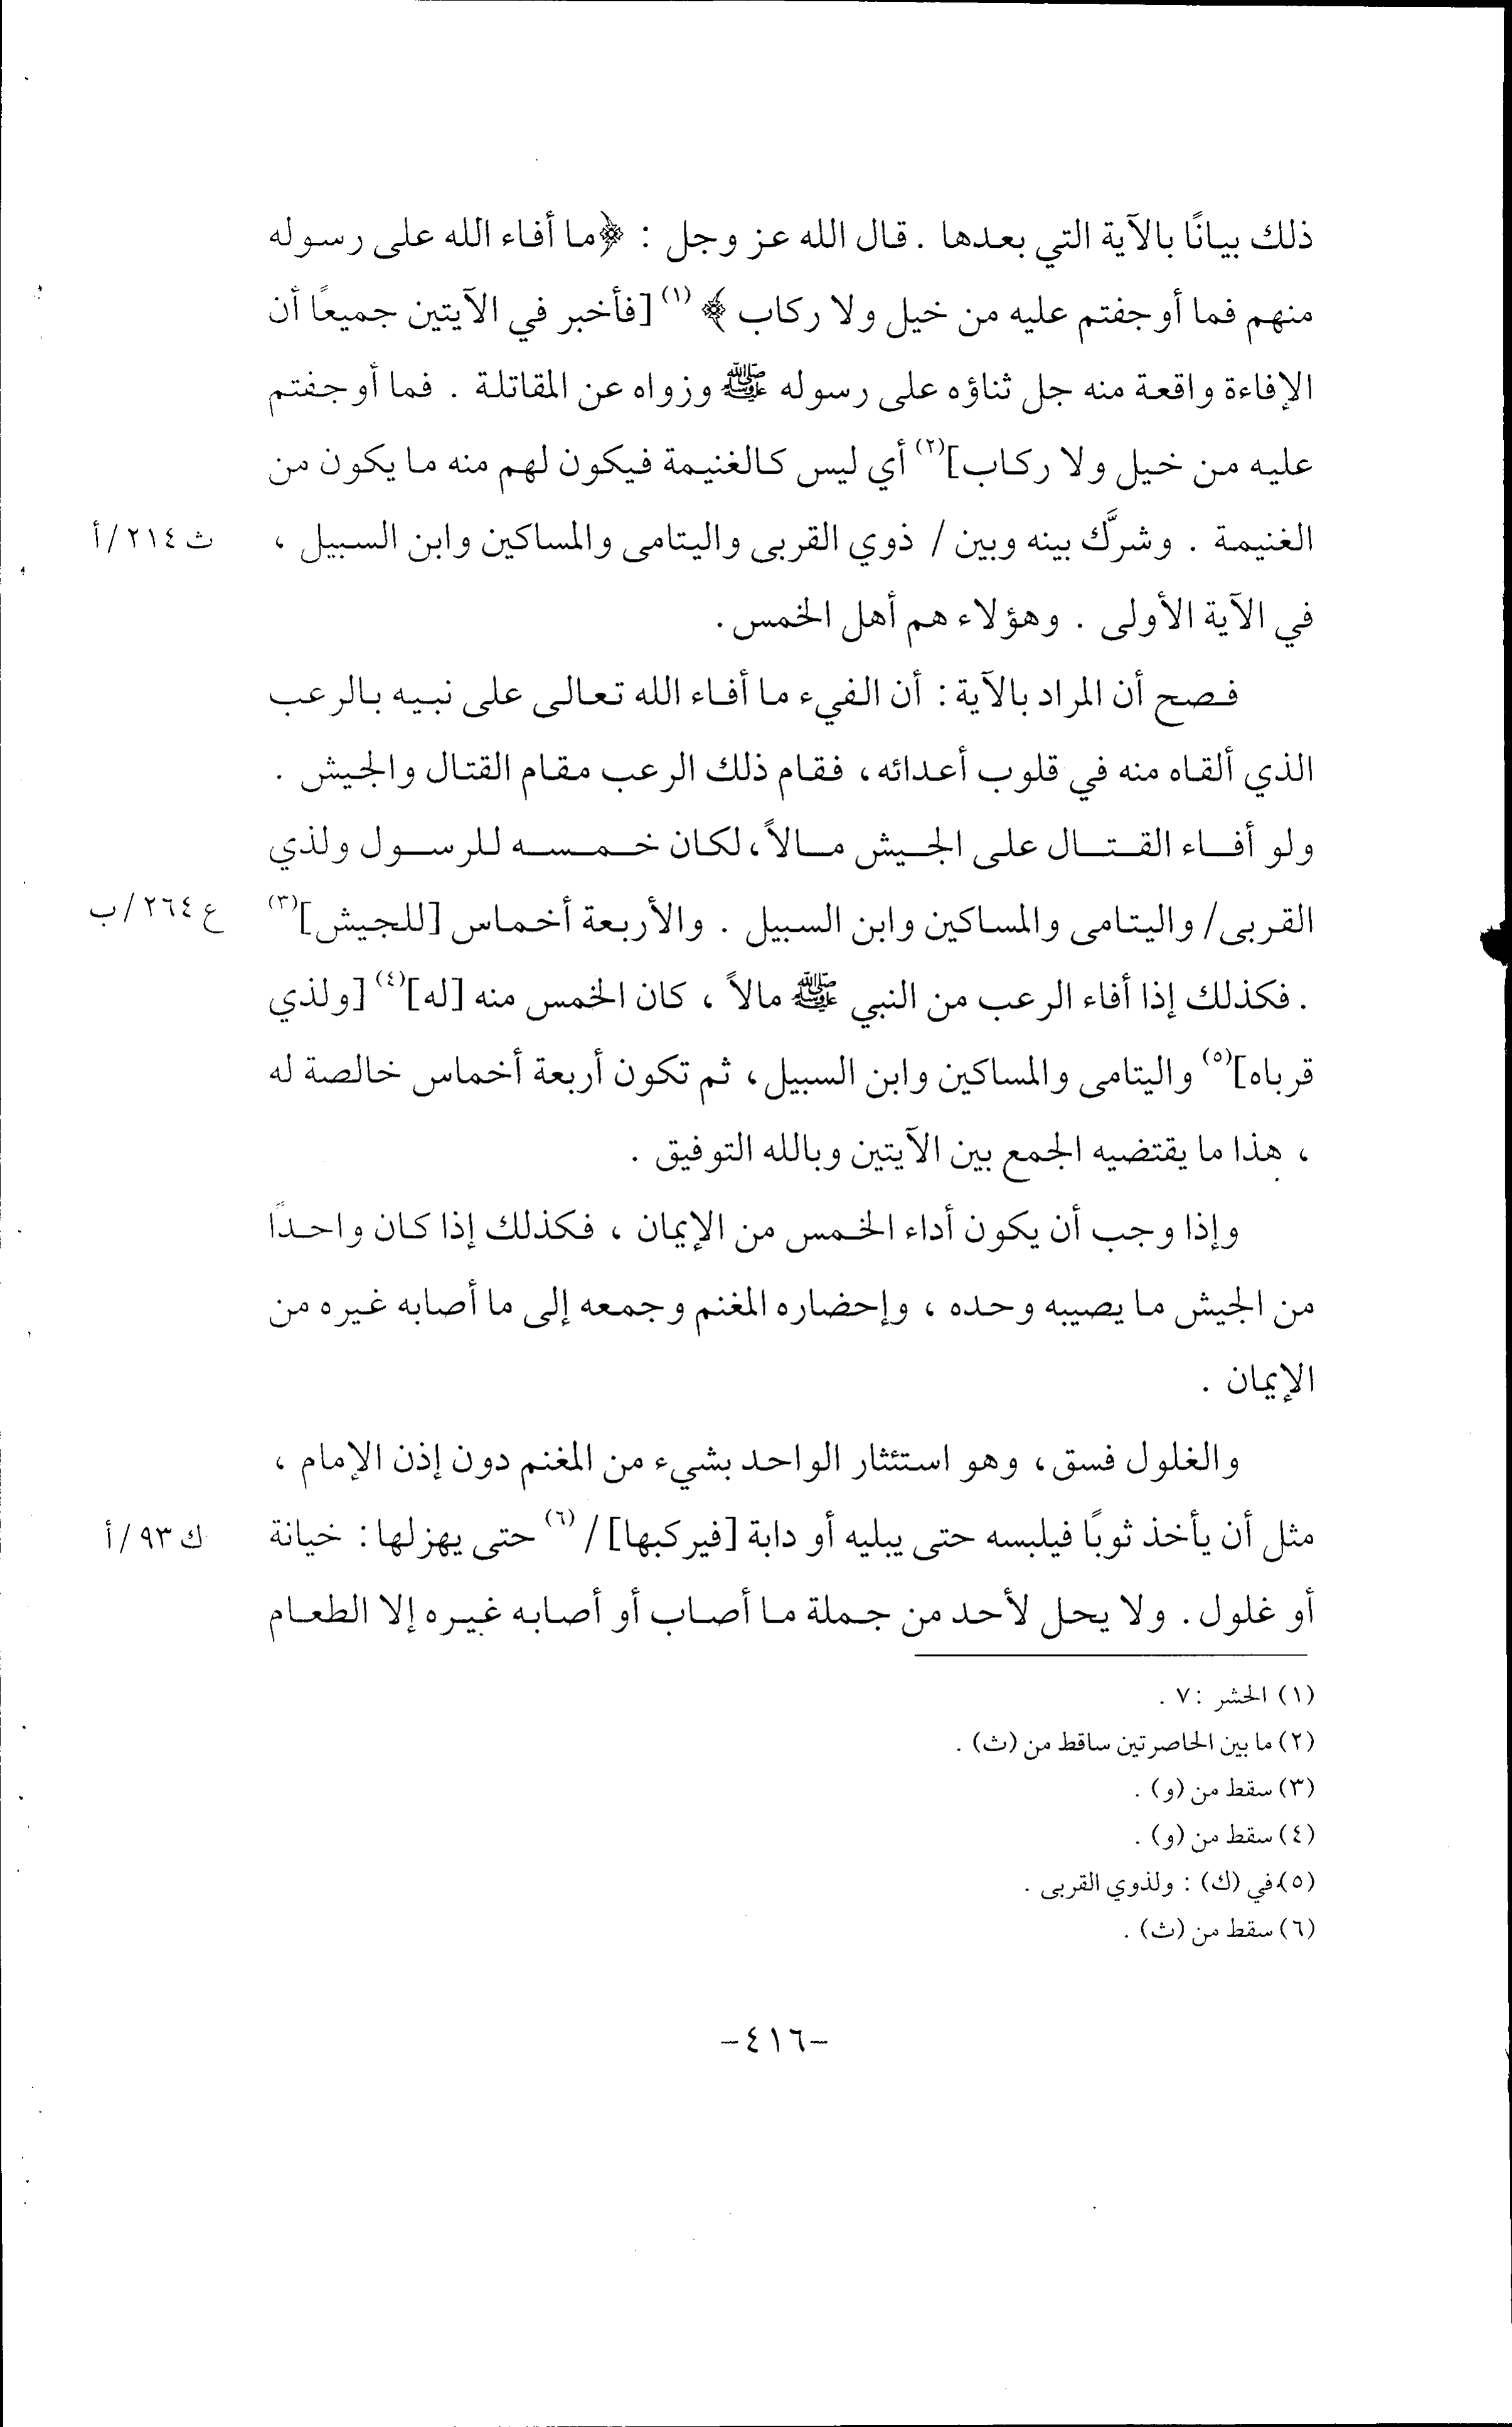 ذلك بيانًا بالآية التي بعدها . قال الله عز وجل : ﴿ما أفاء الله على رسوله
منهم فما أوجفتم عليه من خيل ولا ركاب ﴾ (١) [فأخبر في الآيتين جميعًا أن
الإفاءة واقعة منه جل ثناؤه على رسوله ﷺ وزواه عن المقاتلة . فما أوجفتم
عليه من خيل ولا ركاب](٢) أي ليس كالغنيمة فيكون لهم منه ما يكون من
الغنيمة . وشرَّك بينه وبين / ذوي القربى واليتامى والمساكين وابن السبيل ،
ث ٢١٤/أ
في الآية الأولى . وهؤلاء هم أهل الخمس .
فصح أن المراد بالآية : أن الفيء ما أفاء الله تعالى على نبيه بالرعب
الذي ألقاه منه في قلوب أعدائه ، فقام ذلك الرعب مقام القتال والجيش .
ولو أفاء القتال على الجيش مالاً ، لكان خمسه للرسول ولذي
القربى/ واليتامى والمساكين وابن السبيل . والأربعة أخماس [للجيش](٣)
ع ٢٦٤/ب
. فكذلك إذا أفاء الرعب من النبي ﷺ مالاً ، كان الخمس منه [له](٤) [ولذي
قرباه](٥) واليتامى والمساكين وابن السبيل ، ثم تكون أربعة أخماس خالصة له
، هذا ما يقتضيه الجمع بين الآيتين وبالله التوفيق .
وإذا وجب أن يكون أداء الخمس من الإيمان ، فكذلك إذا كان واحدًا
من الجيش ما يصيبه وحده ، وإحضاره المغنم وجمعه إلى ما أصابه غيره من
الإيمان .
والغلول فسق ، وهو استئثار الواحد بشيء من المغنم دون إذن الإمام ،
مثل أن يأخذ ثوبًا فيلبسه حتى يبليه أو دابة [فيركبها]/ (٦) حتى يهزلها : خيانة
ك ٩٣/أ
أو غلول . ولا يحل لأحد من جملة ما أصاب أو أصابه غيره إلا الطعام
(١) الحشر : ٧ .
(٢) ما بين الحاصرتين ساقط من (ث) .
(٣) سقط من (و) .
(٤) سقط من (و) .
(٥) في (ك) : ولذوي القربى .
(٦) سقط من (ث) .
-٤١٦-